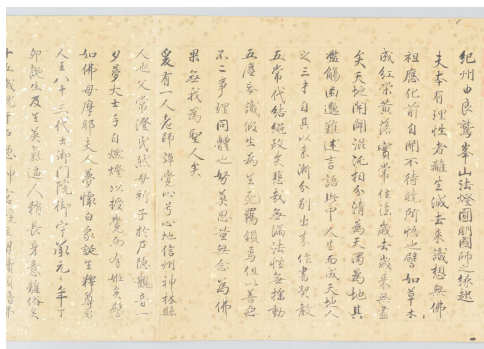 紀州由良鷲峯山法燈圓明國師之縁起
夫本有理性者離生滅去来識想無佛
祖應化前自開不待説所悟之譬如草木
成紅栄黄落實常住法歳去歳来無盡
矣天地開闢混沌相分清為天濁為地其
濫觴幽邈難述言語此中人生而成天地人
之三才自其以来漸分別出于作書契教
五常代結縄政矣悲哉無漏法性妄搖動
五塵妄識假生為生死羈鎖焉但以善悪
不二事理同轉也好莫思量無念為佛
果無我為聖人矣
爰有一人老師諱覺心号心地信州神林縣
人也父常澄氏然母祈子於戸隠觀音一
夕夢大士手自燃燈以授覚而有妊矣譬
如佛母摩耶夫人夢懐白象誕生釋尊
人王八十三代土御門院御宇承元一年丁
卯誕生及生英氣逼人稍長身意離俗矣